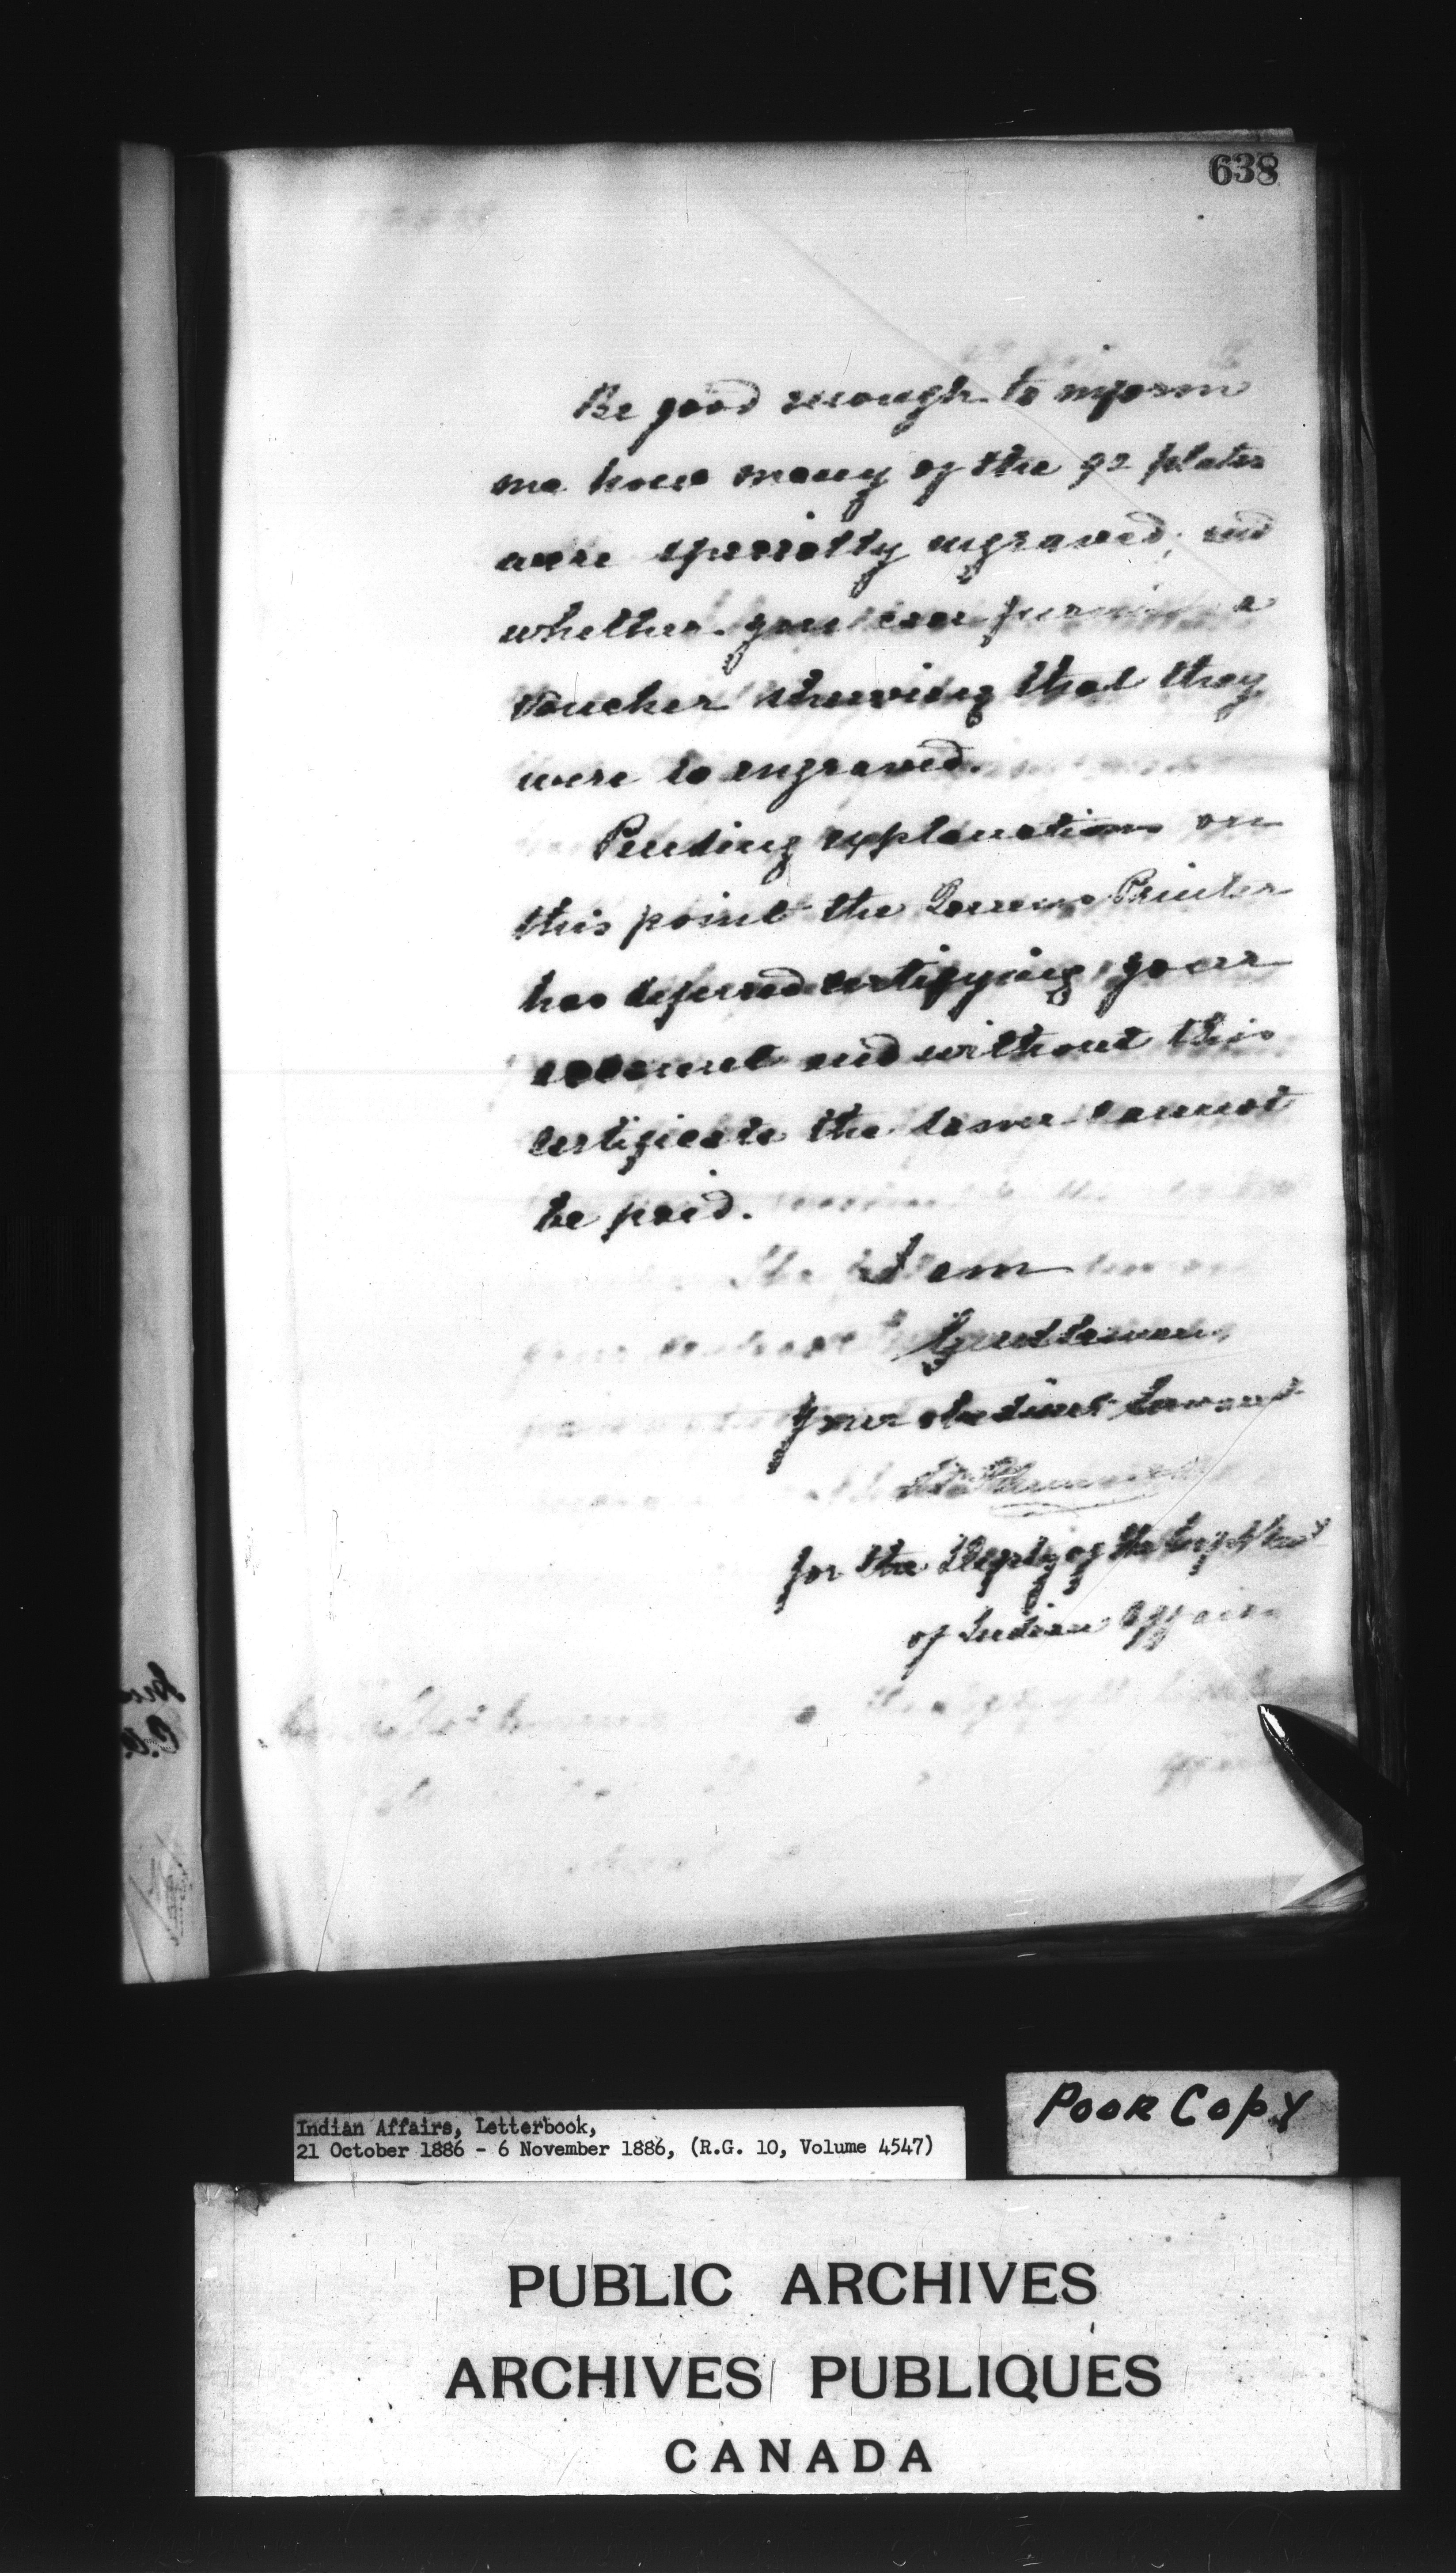 638
Be good enough to inform
me how many of the 92 plates
were specially engraved, and
whether you can furnish a
voucher shewing that they
were so engraved.
Pending explanations on
this point the Queens Printer
has deferred certifying your
account and without this
certificate the same cannot
be paid.
I am
Gentlemen,
Your obedient Servant
for the Deputy of the Supt Gen
of Indian Affairs
POOR COPY
Indian Affairs, Letterbook,
21 October 1886 - 6 November 1886, (R.G. 10, Volume 4547)
PUBLIC ARCHIVES
ARCHIVES PUBLIQUES
CANADA